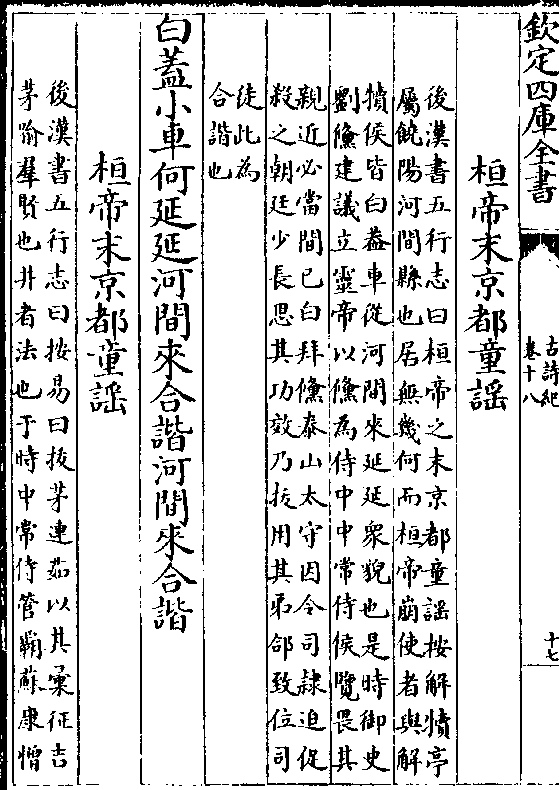 欽定四庫全書
古詩紀
卷十八
十七
桓帝末京都童謡
後漢書五行志曰桓帝之末京都童謡按解犢亭
屬饒陽河間縣也居無幾何而桓帝崩使者與解
犢侯皆白葢車從河間來延延衆貌也是時御史
劉儵建議立靈帝以儵為侍中中常侍侯覽畏其
親近必當間已白拜儵泰山太守因令司隸迫促
殺之朝廷少長思其功效乃拔用其弟郃致位司
徒此為
合諧也
白蓋小車何延延河間來合諧河間來合諧
桓帝末京都童謡
後漢書五行志曰按易曰拔茅連茹以其彚征吉
茅喻羣賢也井者法也于時中常侍管覇蘇康憎